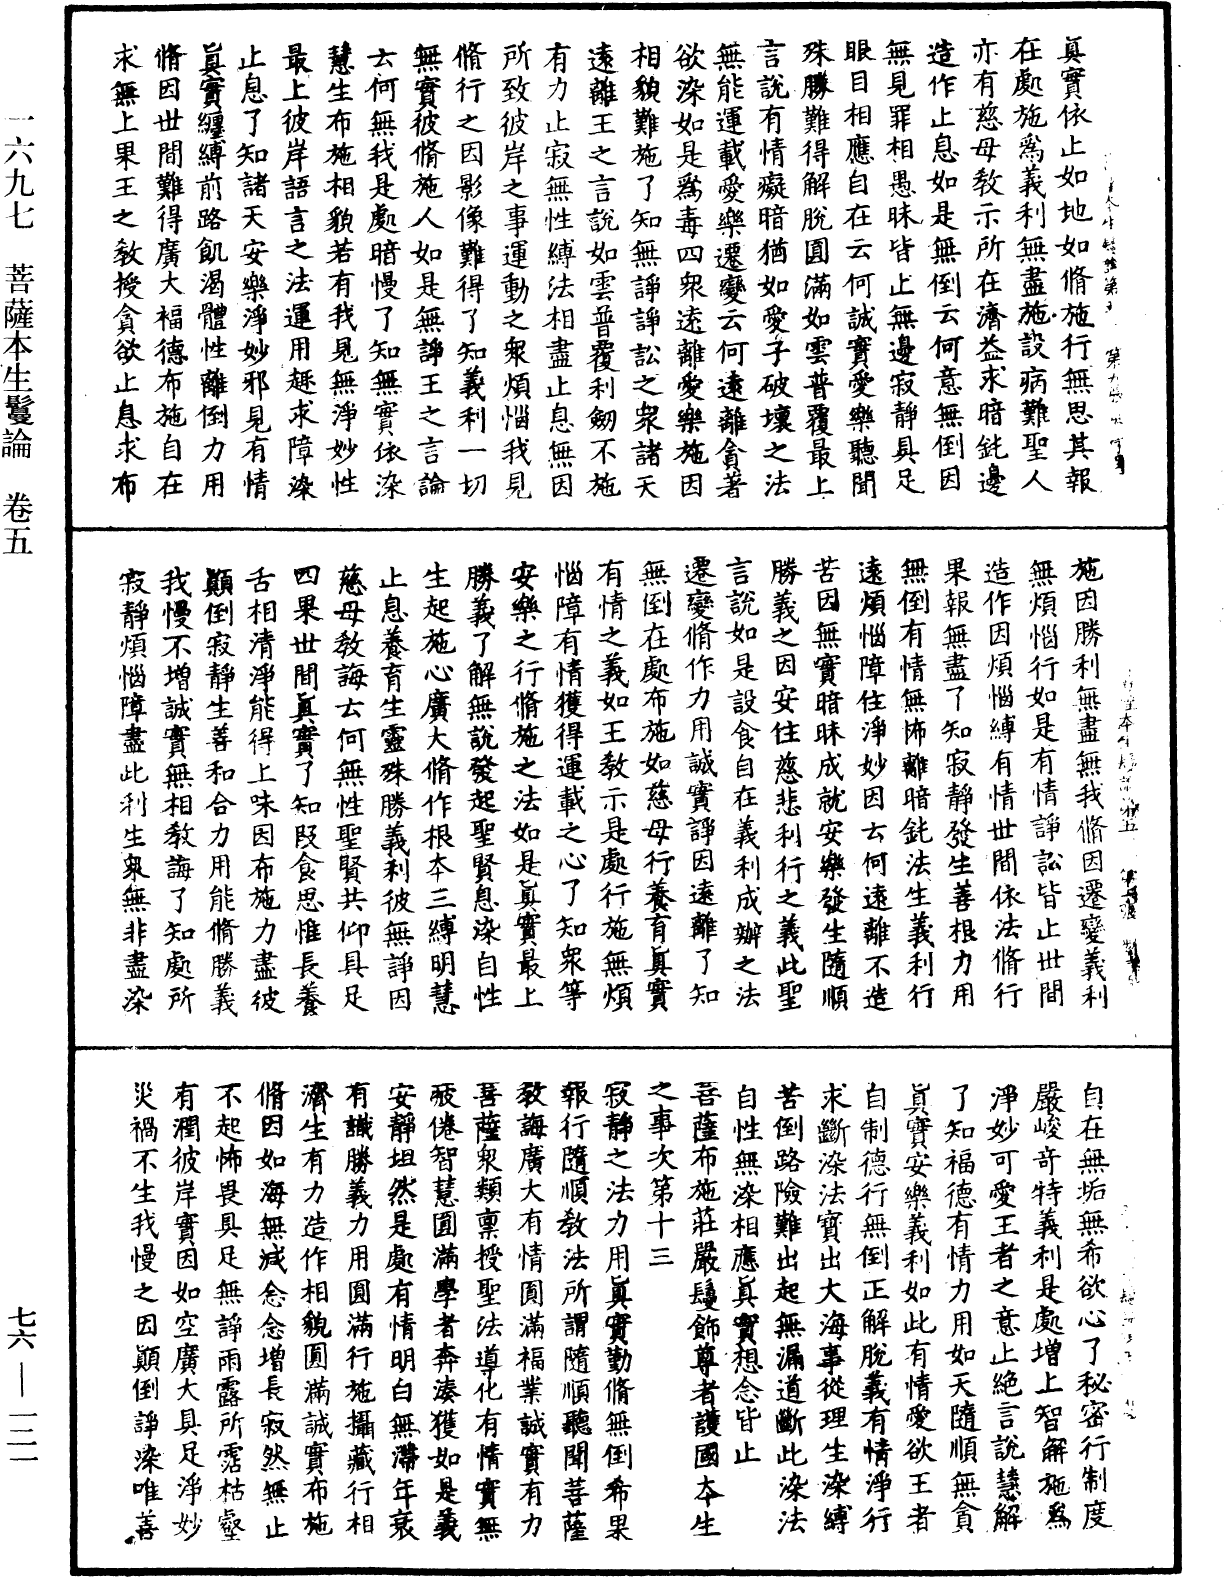 眞實依止如地如脩施行無思其報
在處施爲義利無盡施設病難聖人
亦有慈母教示所在濟益求暗鈍邊
造作止息如是無倒云何意無倒因
無見罪相愚昧皆止無邊寂靜具足
眼目相應自在云何誠實愛樂聽聞
殊勝難得解脫圓滿如雲普覆最上
言說有情癡暗猶如愛子破壞之法
無能運載愛樂遷變云何遠離貪著
欲染如是爲毒四衆遠離愛樂施因
相貌難施了知無諍諍訟之衆諸天
遠離王之言說如雲普覆利劒不施
有力止寂無性縛法相盡止息無因
所致彼岸之事運動之衆煩惱我見
脩行之因影像難得了知義利一切
無實彼脩施人如是無諍王之言論
云何無我是處暗慢了知無實依染
慧生布施相貌若有我見無淨妙性
最上彼岸語言之法運用趣求障染
止息了知諸天安樂淨妙邪見有情
眞實纏縛前路飢渴體性離倒力用
脩因世間難得廣大福德布施自在
求無上果王之教授貪欲止息求布
施因勝利無盡無我脩因遷變義利
無煩惱行如是有情諍訟皆止世間
造作因煩惱縛有情世間依法脩行
果報無盡了知寂靜發生善根力用
無倒有情無怖離暗鈍法生義利行
遠煩惱障住淨妙因云何遠離不造
苦因無實暗昧成就安樂發生隨順
勝義之因安住慈悲利行之義此聖
言說如是設食自在義利成辦之法
遷變脩作力用誠實諍因遠離了知
無倒在處布施如慈母行養育眞實
有情之義如王教示是處行施無煩
惱障有情獲得運載之心了知衆等
安樂之行脩施之法如是眞實最上
勝義了解無說發起聖賢息染自性
生起施心廣大脩作根本三縛明慧
止息養育生靈殊勝義利彼無諍因
慈母教誨云何無性聖賢共仰具足
四果世間眞實了知段食思惟長養
舌相清淨能得上味因布施力盡彼
顚倒寂靜生善和合力用能脩勝義
我慢不增誠實無相教誨了知處所
寂靜煩惱障盡此利生衆無非盡染
自在無垢無希欲心了秘密行制度
嚴峻奇特義利是處增上智解施爲
淨妙可愛王者之意止絕言說慧解
了知福德有情力用如天隨順無貪
眞實安樂義利如此有情愛欲王者
自制德行無倒正解脫義有情淨行
求斷染法寳出大海事從理生染縛
苦倒路險難出起無漏道斷此染法
自性無染相應眞實想念皆止
菩薩布施莊嚴鬘飾尊者護國本生
之事次第十三
寂靜之法力用眞實勤脩無倒希果
報行隨順教法所謂隨順聽聞菩薩
教誨廣大有情圓滿福業誠實有力
菩薩衆類稟授聖法導化有情實無
疲倦智慧圓滿學者奔湊獲如是義
安靜坦然是處有情明白無滯年衰
有識勝義力用圓滿行施攝藏行相
濟生有力造作相貌圓滿誠實布施
脩因如海無減念念增長寂然無止
不起怖畏具足無諍雨露所霑枯壑
有潤彼岸實因如空廣大具足淨妙
災禍不生我慢之因顚倒諍染唯善
一六九七　菩薩本生鬘論　卷五
七六—一三一